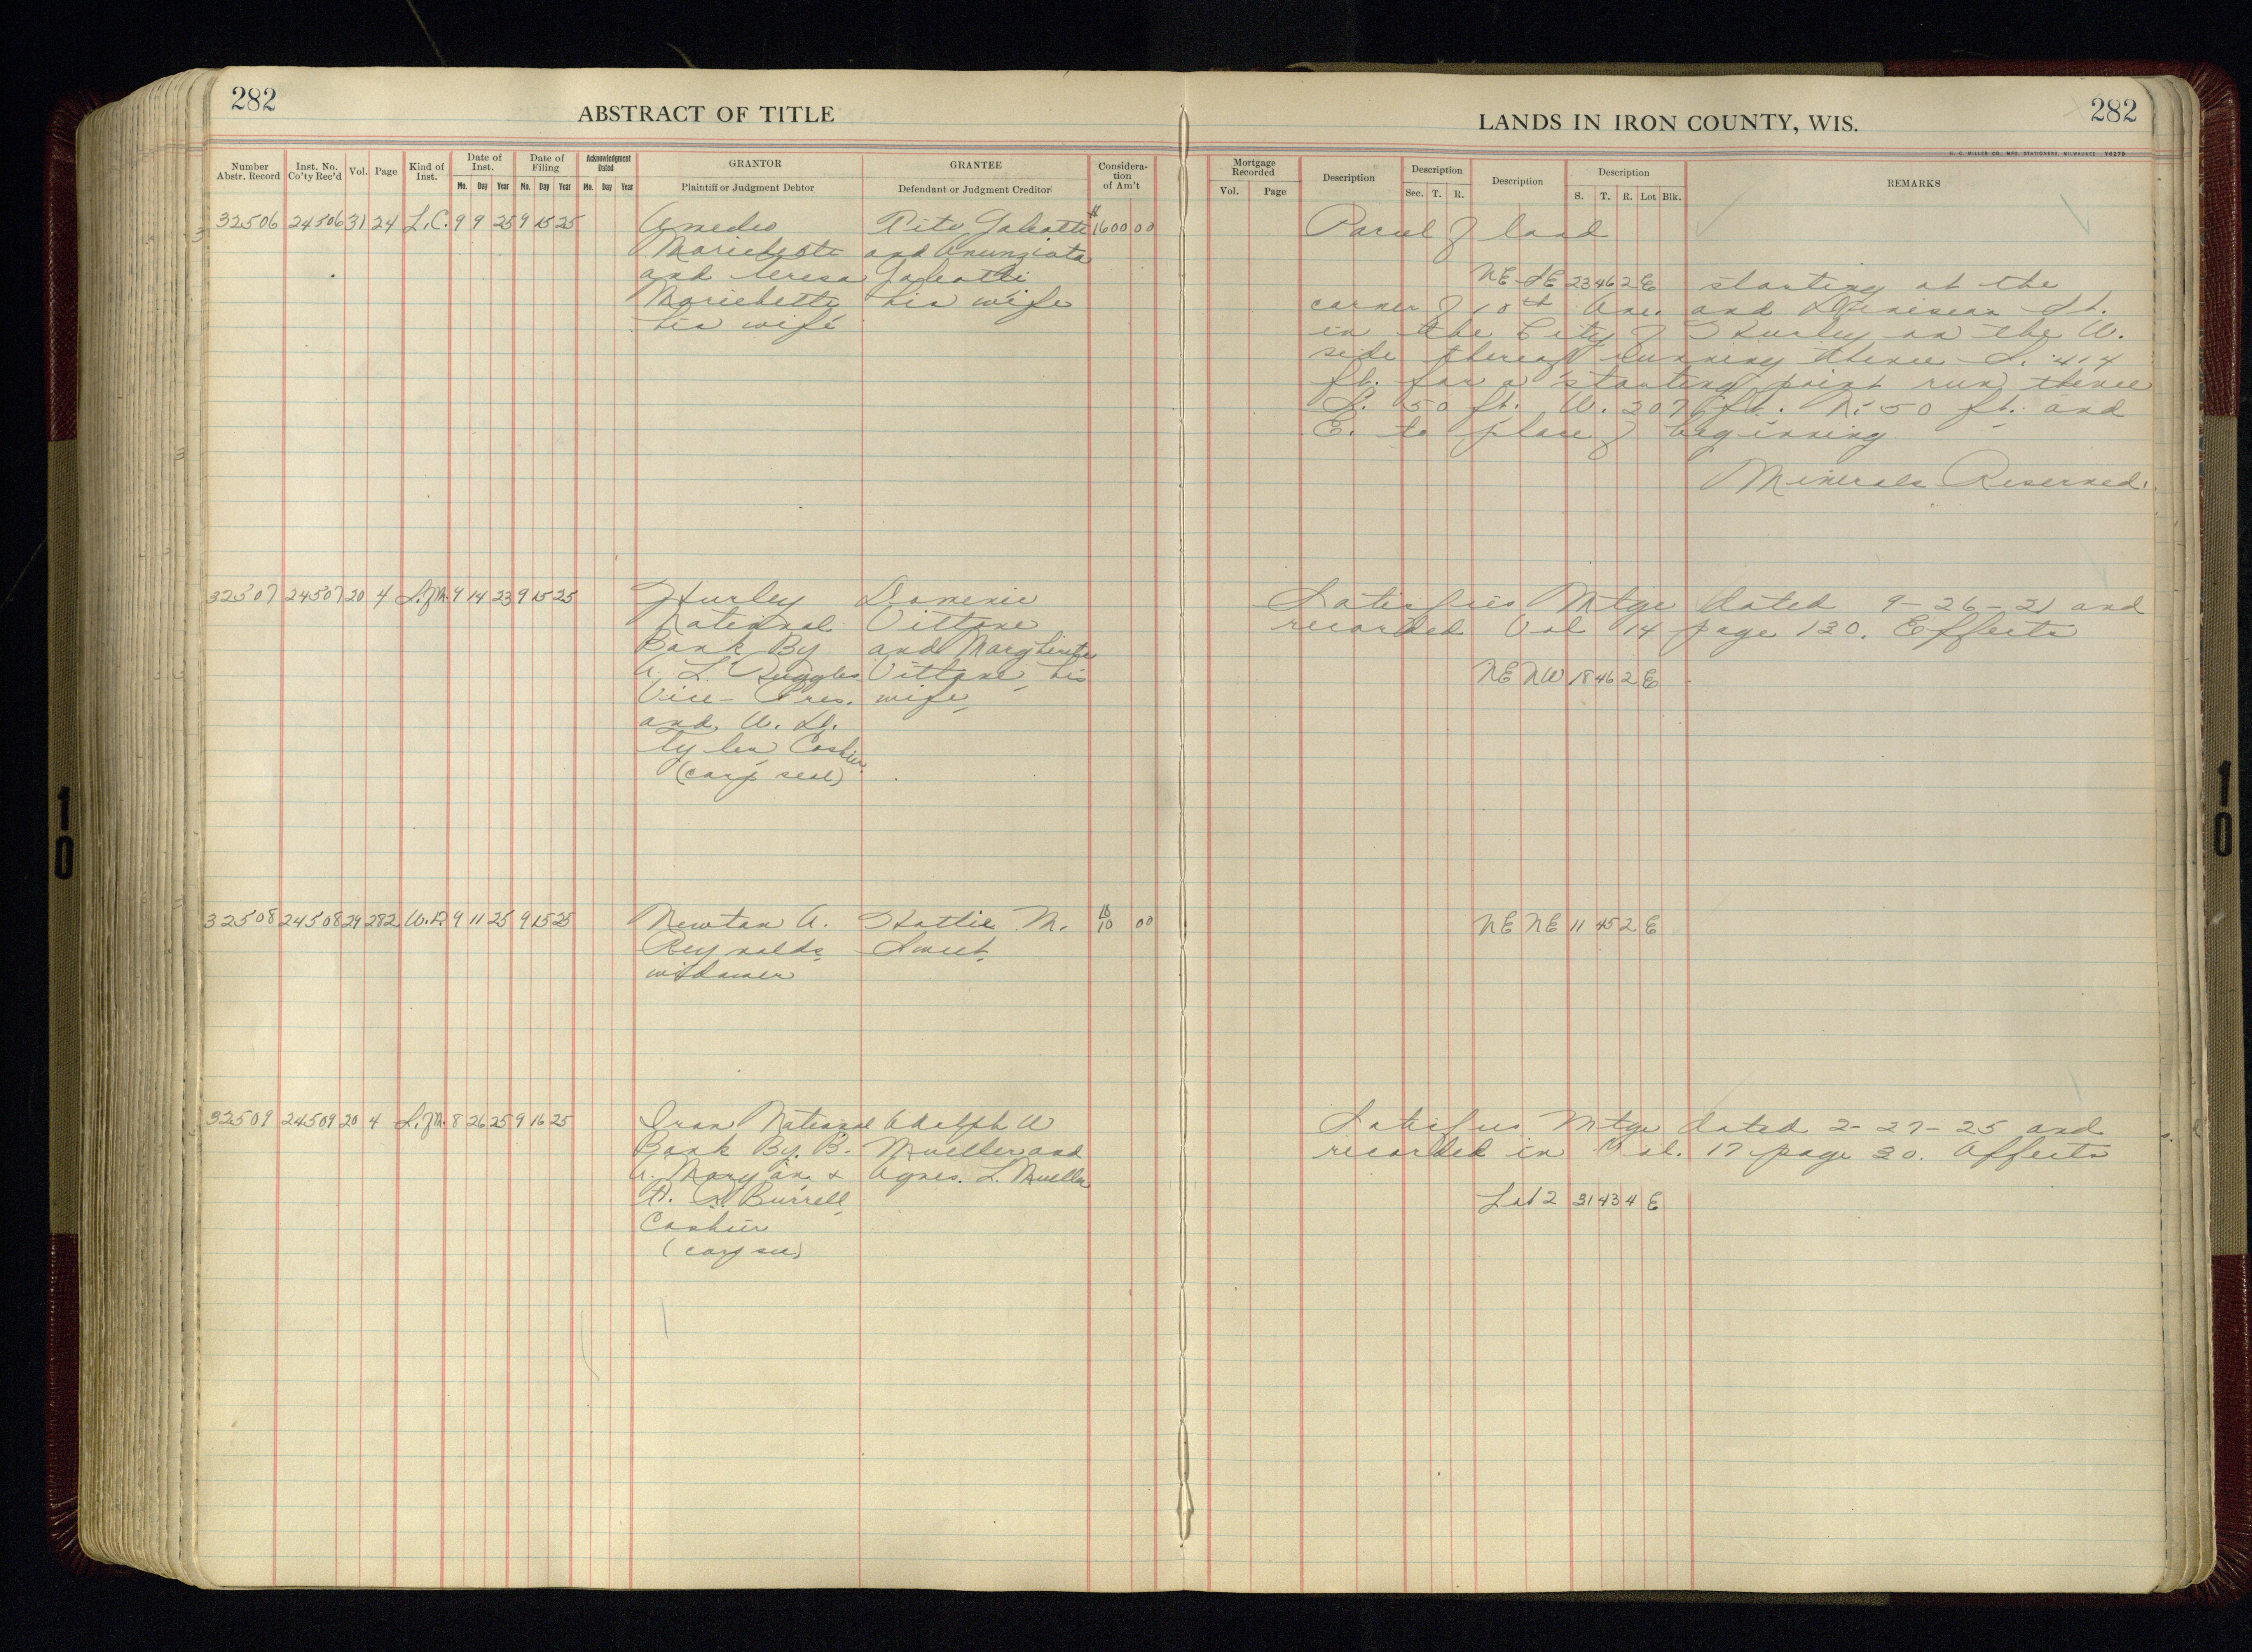 282
ABSTRACT OF TITLE
LANDS IN IRON COUNTY, WIS.
282
H. C. MILLER CO., MFG. STATIONERS, MILWAUKEE Y6279
Number Abstr. Record
Inst. No. Co'ty Rec'd
Vol.
Page
Kind of Inst.
Date of Inst.
Mo. Day Year
Date of Filing
Mo. Day Year
Acknowledgment Dated
Mo. Day Year
GRANTOR
Plaintiff or Judgment Debtor
GRANTEE
Defendant or Judgment Creditor
Considera-
tion
of Am't
Mortgage Recorded
Vol. Page
Description
Description
Sec. T. R.
Description
Description
S. T. R. Lot Blk.
REMARKS
32506 24506 31 24 L.C. 9 9 25 9 15 25
Amedeo
and Teresa
his wife
and Anunziata
his wife
$1600 00
Parcel of land
NE SE 23 46 2 E starting at the
corner of 10th Ave. and St.
in the City of Hurley on the W.
side thereof running thence S. 414
ft. for a starting point run thence
S. 50 ft. W. 207 ft. N. 50 ft. and
E. to place of beginning
Minerals Reserved.
32507 24507 20 4 S.of M. 9 14 23 9 15 25
Hurley
National
Bank By
A. L. Ruggles
Vice-Pres.
and W. S.
Tyler Cashier
(corp seal)
Dominic
Vittone
and Margherita
Vittone, his
wife
Satisfies Mtge dated 9-26-21 and
recorded Vol 14 page 130. Effects
NE NW 18 46 2 E
32508 24508 29 282 W.D. 9 11 25 9 15 25
Newton A.
Reynolds
widower
Hattie M.
Sweet
$10 00
NE NE 11 45 2 E
32509 24509 20 4 S.of M. 8 26 25 9 16 25
Iron National
Bank By. B.
&
Burrell,
Cashier
(corp seal)
Adolph W
Mueller and
Agnes. L. Mueller
Satisfies Mtge dated 2-27-25 and
recorded in Vol. 17 page 30. Affects
Lot 2 31 43 4 E
10
10